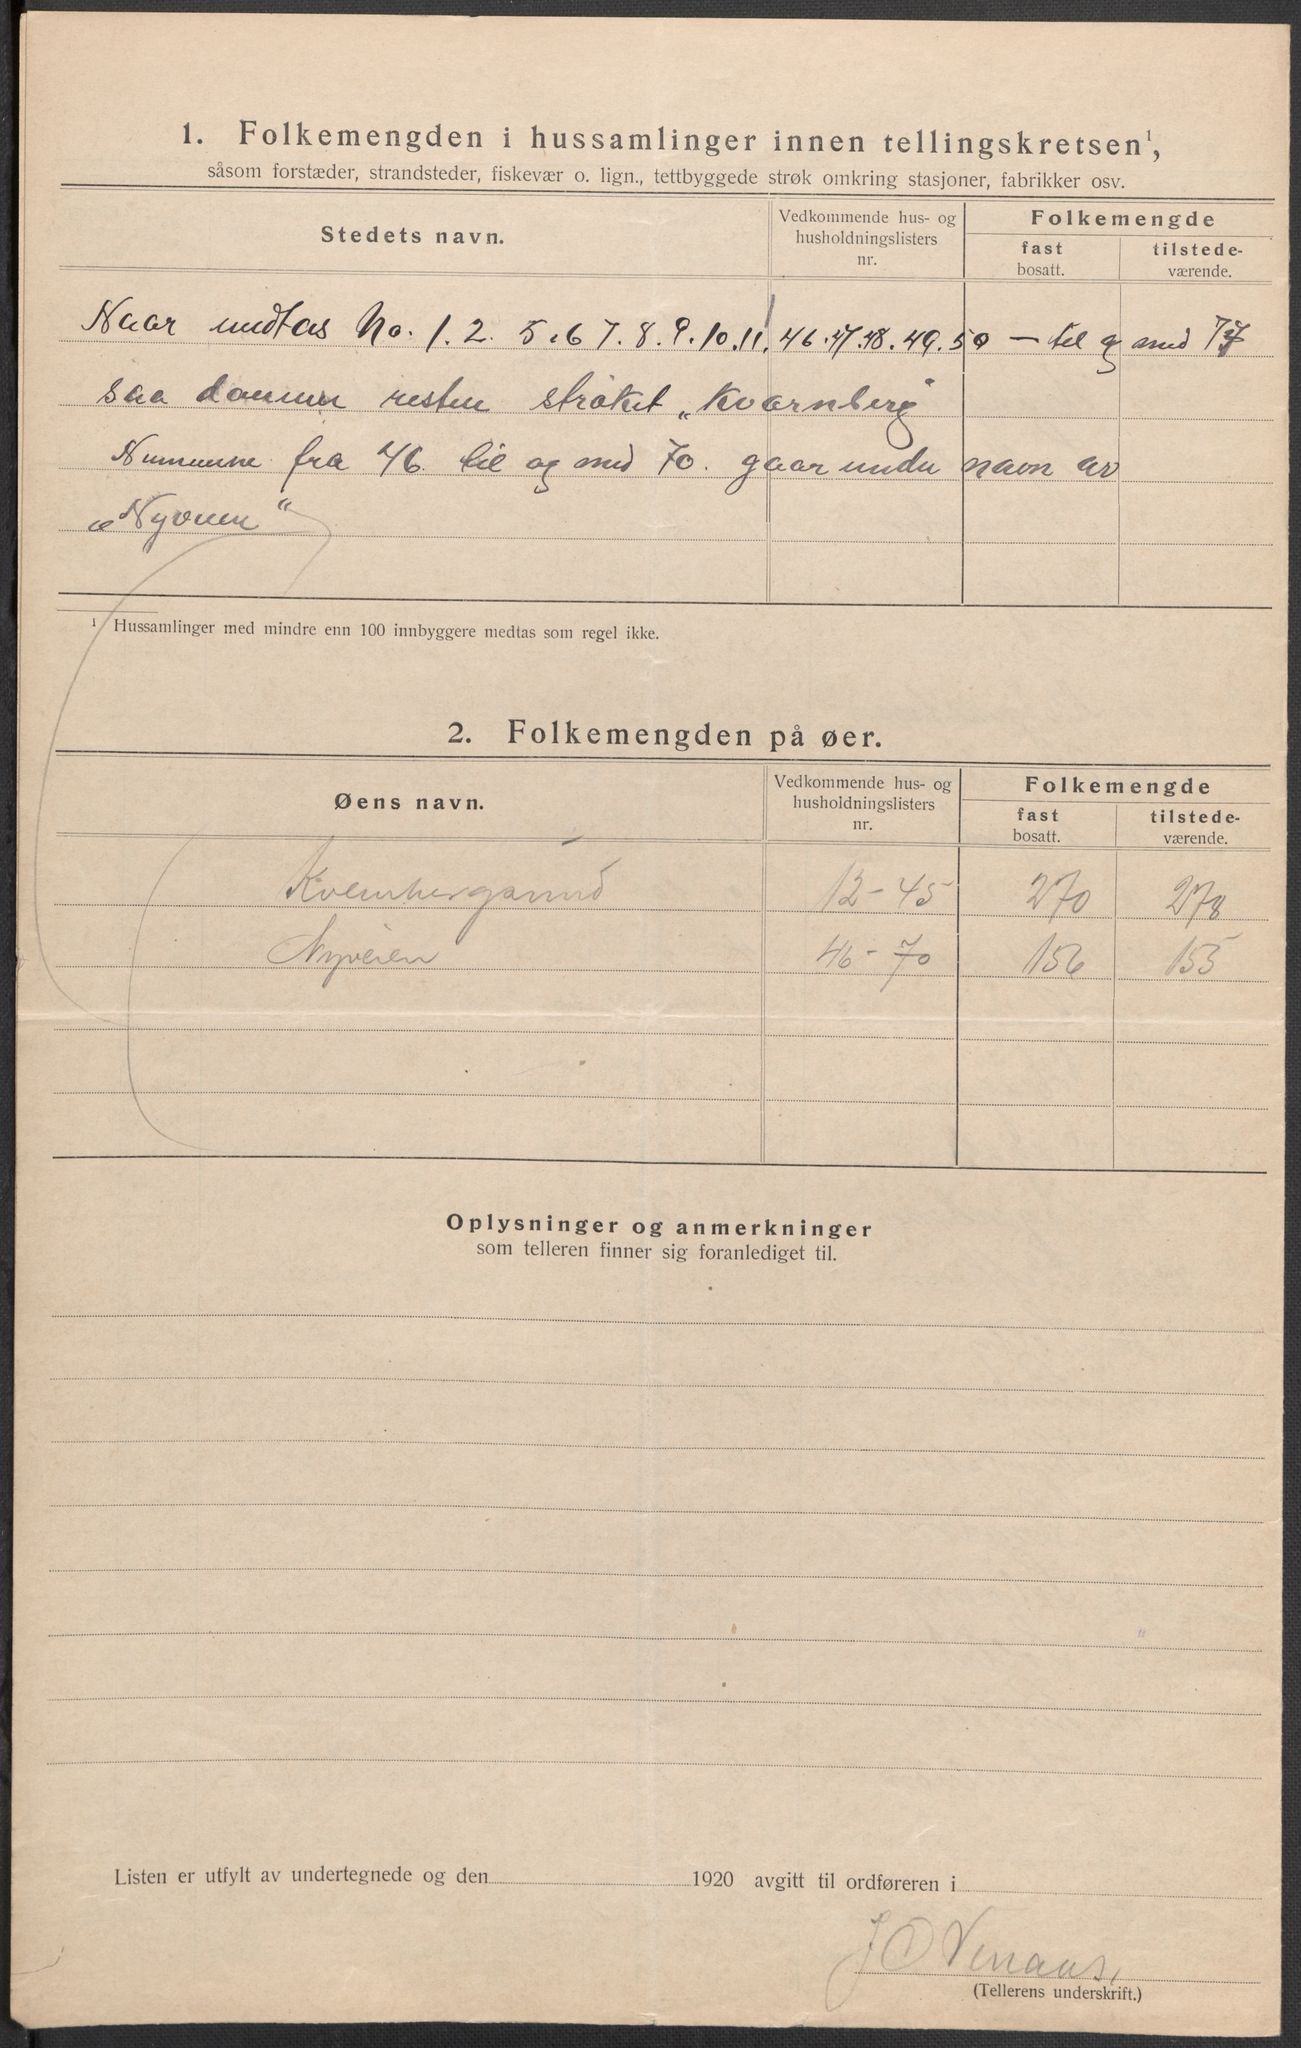 1. Folkemengden i hussamlinger innen tellingskretsen¹,
såsom forstæder, strandsteder, fiskevær o. lign., tettbyggede strøk omkring stasjoner, fabrikker osv.
Stedets navn.
Vedkommende hus- og
husholdningslisters
nr.
Folkemengde
fast
bosatt.
tilstede-
værende.
Naar undtas No. 1. 2. 5. 6 7. 8. 9. 10. 11. 46. 47. 48. 49. 50 — til og med 77
saa danner resten strøket „Kvarnberg"
Numrene fra 46 til og med 70. gaar under navn av
„Nyveien"
¹ Hussamlinger med mindre enn 100 innbyggere medtas som regel ikke.
2. Folkemengden på øer.
Øens navn.
Vedkommende hus- og
husholdningslisters
nr.
Folkemengde
fast
bosatt.
tilstede-
værende.
12 - 45 270 278
Nyveien 46 - 70 156 155
Oplysninger og anmerkninger
som telleren finner sig foranlediget til.
Listen er utfylt av undertegnede og den 1920 avgitt til ordføreren i
(Tellerens underskrift.)